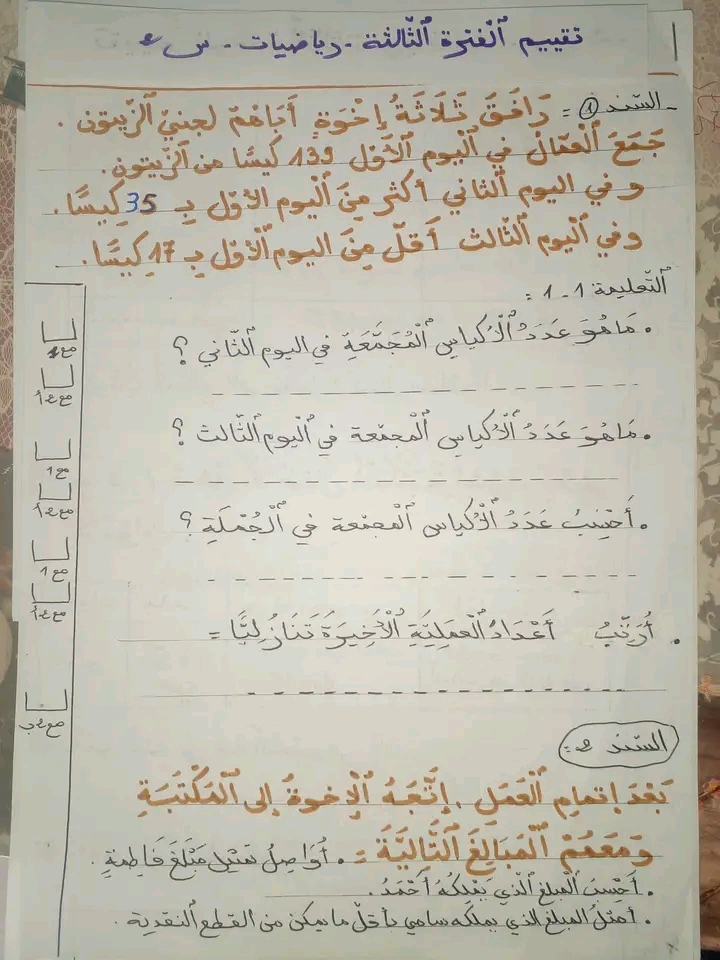 تقييم الفترة الثّالثة - رياضيات - س 2
- السّند ① = رَافَقَ ثَلَاثَةُ إِخْوَةٍ أَبَاهُمْ لِجني الزّيتون .
جَمَعَ الْعمّالُ في الْيوم الأوّل 139 كيسًا من الزّيتون.
و في اليوم الثاني أكثر مِنَ الْيوم الأوّل بِـ 35 كيسًا .
وفي الْيوم الثّالث أقلّ مِنَ اليوم الْأوّل بِـ 17 كيسًا.
التّعليمة 1 - 1 =
. مَا هُوَ عَدَدُ الْأكياسِ الْمُجَمَّعَةِ في اليوم الثّاني ؟
مع 1
مع 2أ
. مَا هُوَ عَدَدُ الْأكياسِ الْمجمّعة في الْيوم الثّالث ؟
مع 1
مع 2أ
. أَحْسِبُ عَدَدَ الْأكياسِ الْمجمّعة في الْجُمْلَةِ ؟
مع 1
مع 2أ
. أُرَتِّبُ أَعْدَادَ الْعمَلِيَّةِ الْأَخِيرَةِ تَنَازُلِيًّا =
مع 2ب
السّند 2 =
بَعْدَ إتمامِ الْعمَلِ ، إتَّجَهَ الْإخوةُ إلى الْمَكْتَبَةِ
وَمَعَهُمْ الْمَبَالِغَ التَّالِيَةَ = . أُوَاصِلُ تمثيل مَبْلَغَ فَاطِمَةٍ .
. أَحْسِبُ الْمبلغ الّذي يَمْلِكُهُ أَحْمَدُ .
. أمثّلُ المبلغ الذي يملكه سامي بأقلّ ما يمكن من القطع النّقدية .